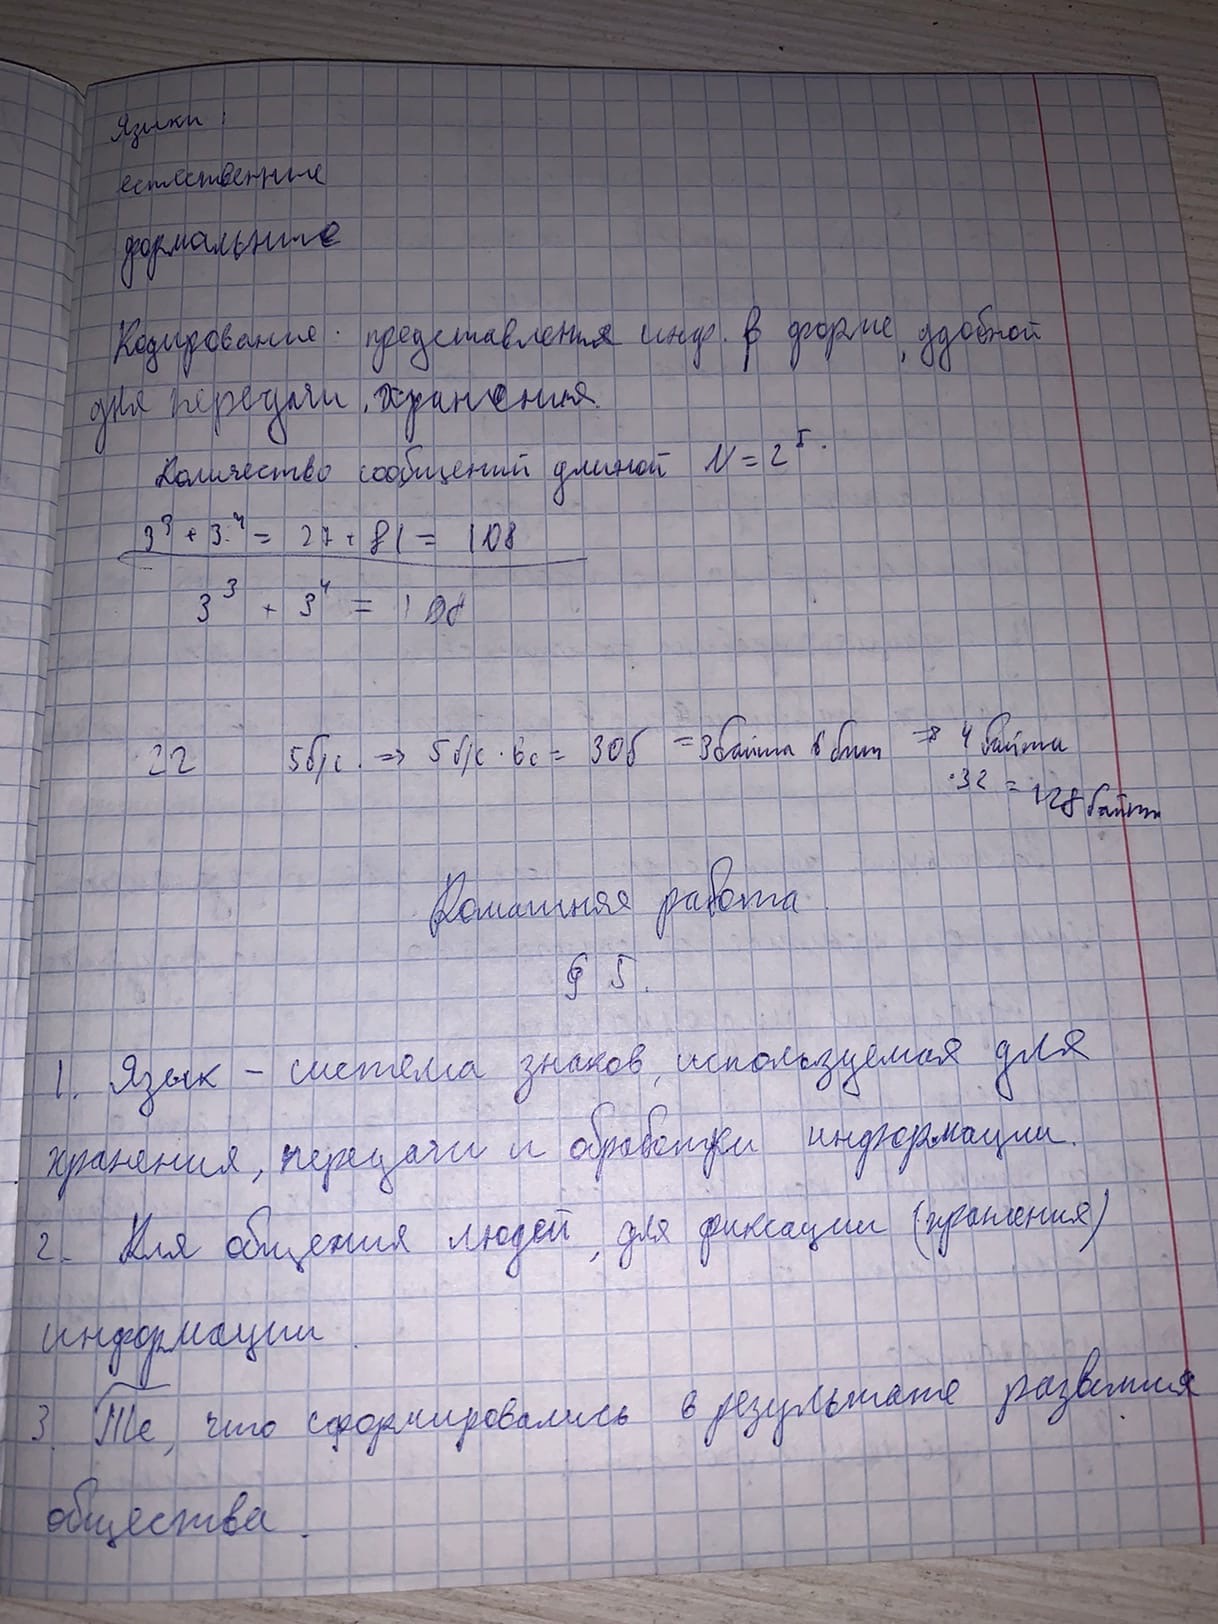 Языки:
естественные
формальные
Кодирование: представления инф. в форме, удобной
для передачи, хранения.
Количество сообщений длиной N = 2^I.
3^3 + 3^4 = 27 + 81 = 108
3^3 + 3^4 = 108
22 5б/с. => 5б/с · 6с = 30б = 3байта 6бит => 4 байта
·32 = 128 байт
Домашняя работа.
§ 5.
1. Язык – система знаков, используемая для
хранения, передачи и обработки информации.
2. Для общения людей, для фиксации (хранения)
информации.
3. Те, что сформировались в результате развития
общества.